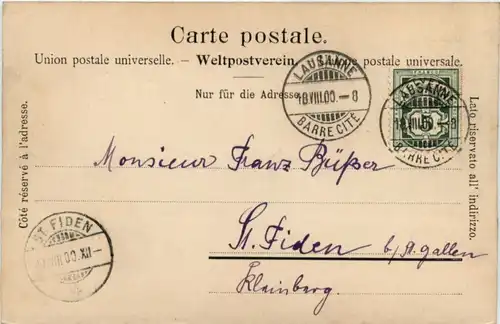 Carte postale.
Union postale universelle. — Weltpostverein. postale universale.
Nur für die Adresse
Côté réservé à l'adresse.
Lato riservato all' indirizzo.
LAUSANNE
18.VIII.00.–8
BARRE CITÉ
FRANCO
5
LAUSANNE
VIII –8
BARRE CITÉ
Monsieur Franz Büßer
St. Fiden b/St. Gallen
Kleinberg.
ST. FIDEN
VIII.00.XII–